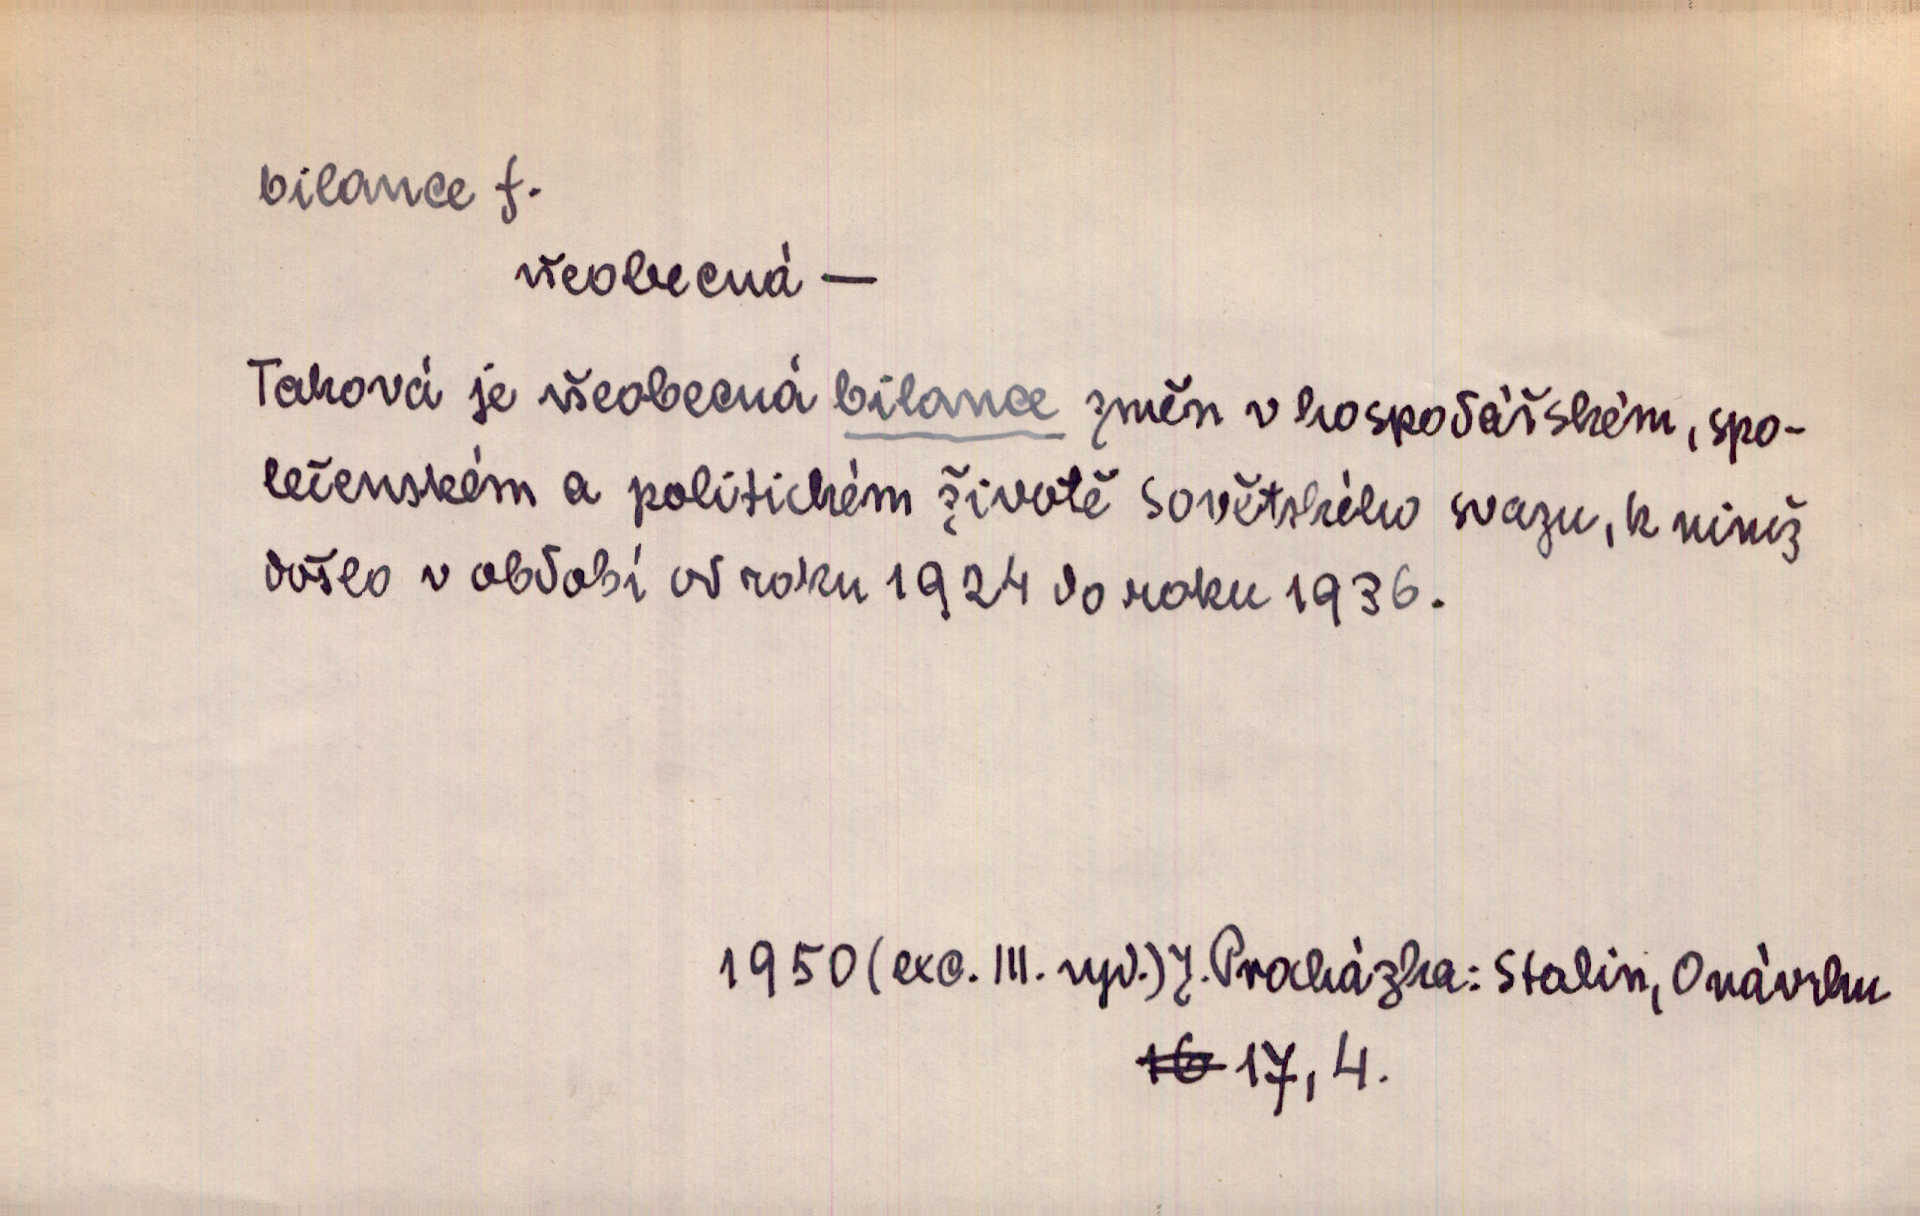 bilance f.
všeobecná —
Taková je všeobecná bilance změn v hospodářském, spo-
lečenském a politickém životě Sovětského svazu, k nimž
došlo v období od roku 1924 do roku 1936.
1950 (exc. III. vyd.) J. Procházka: Stalin, O návrhu
16 17, 4.